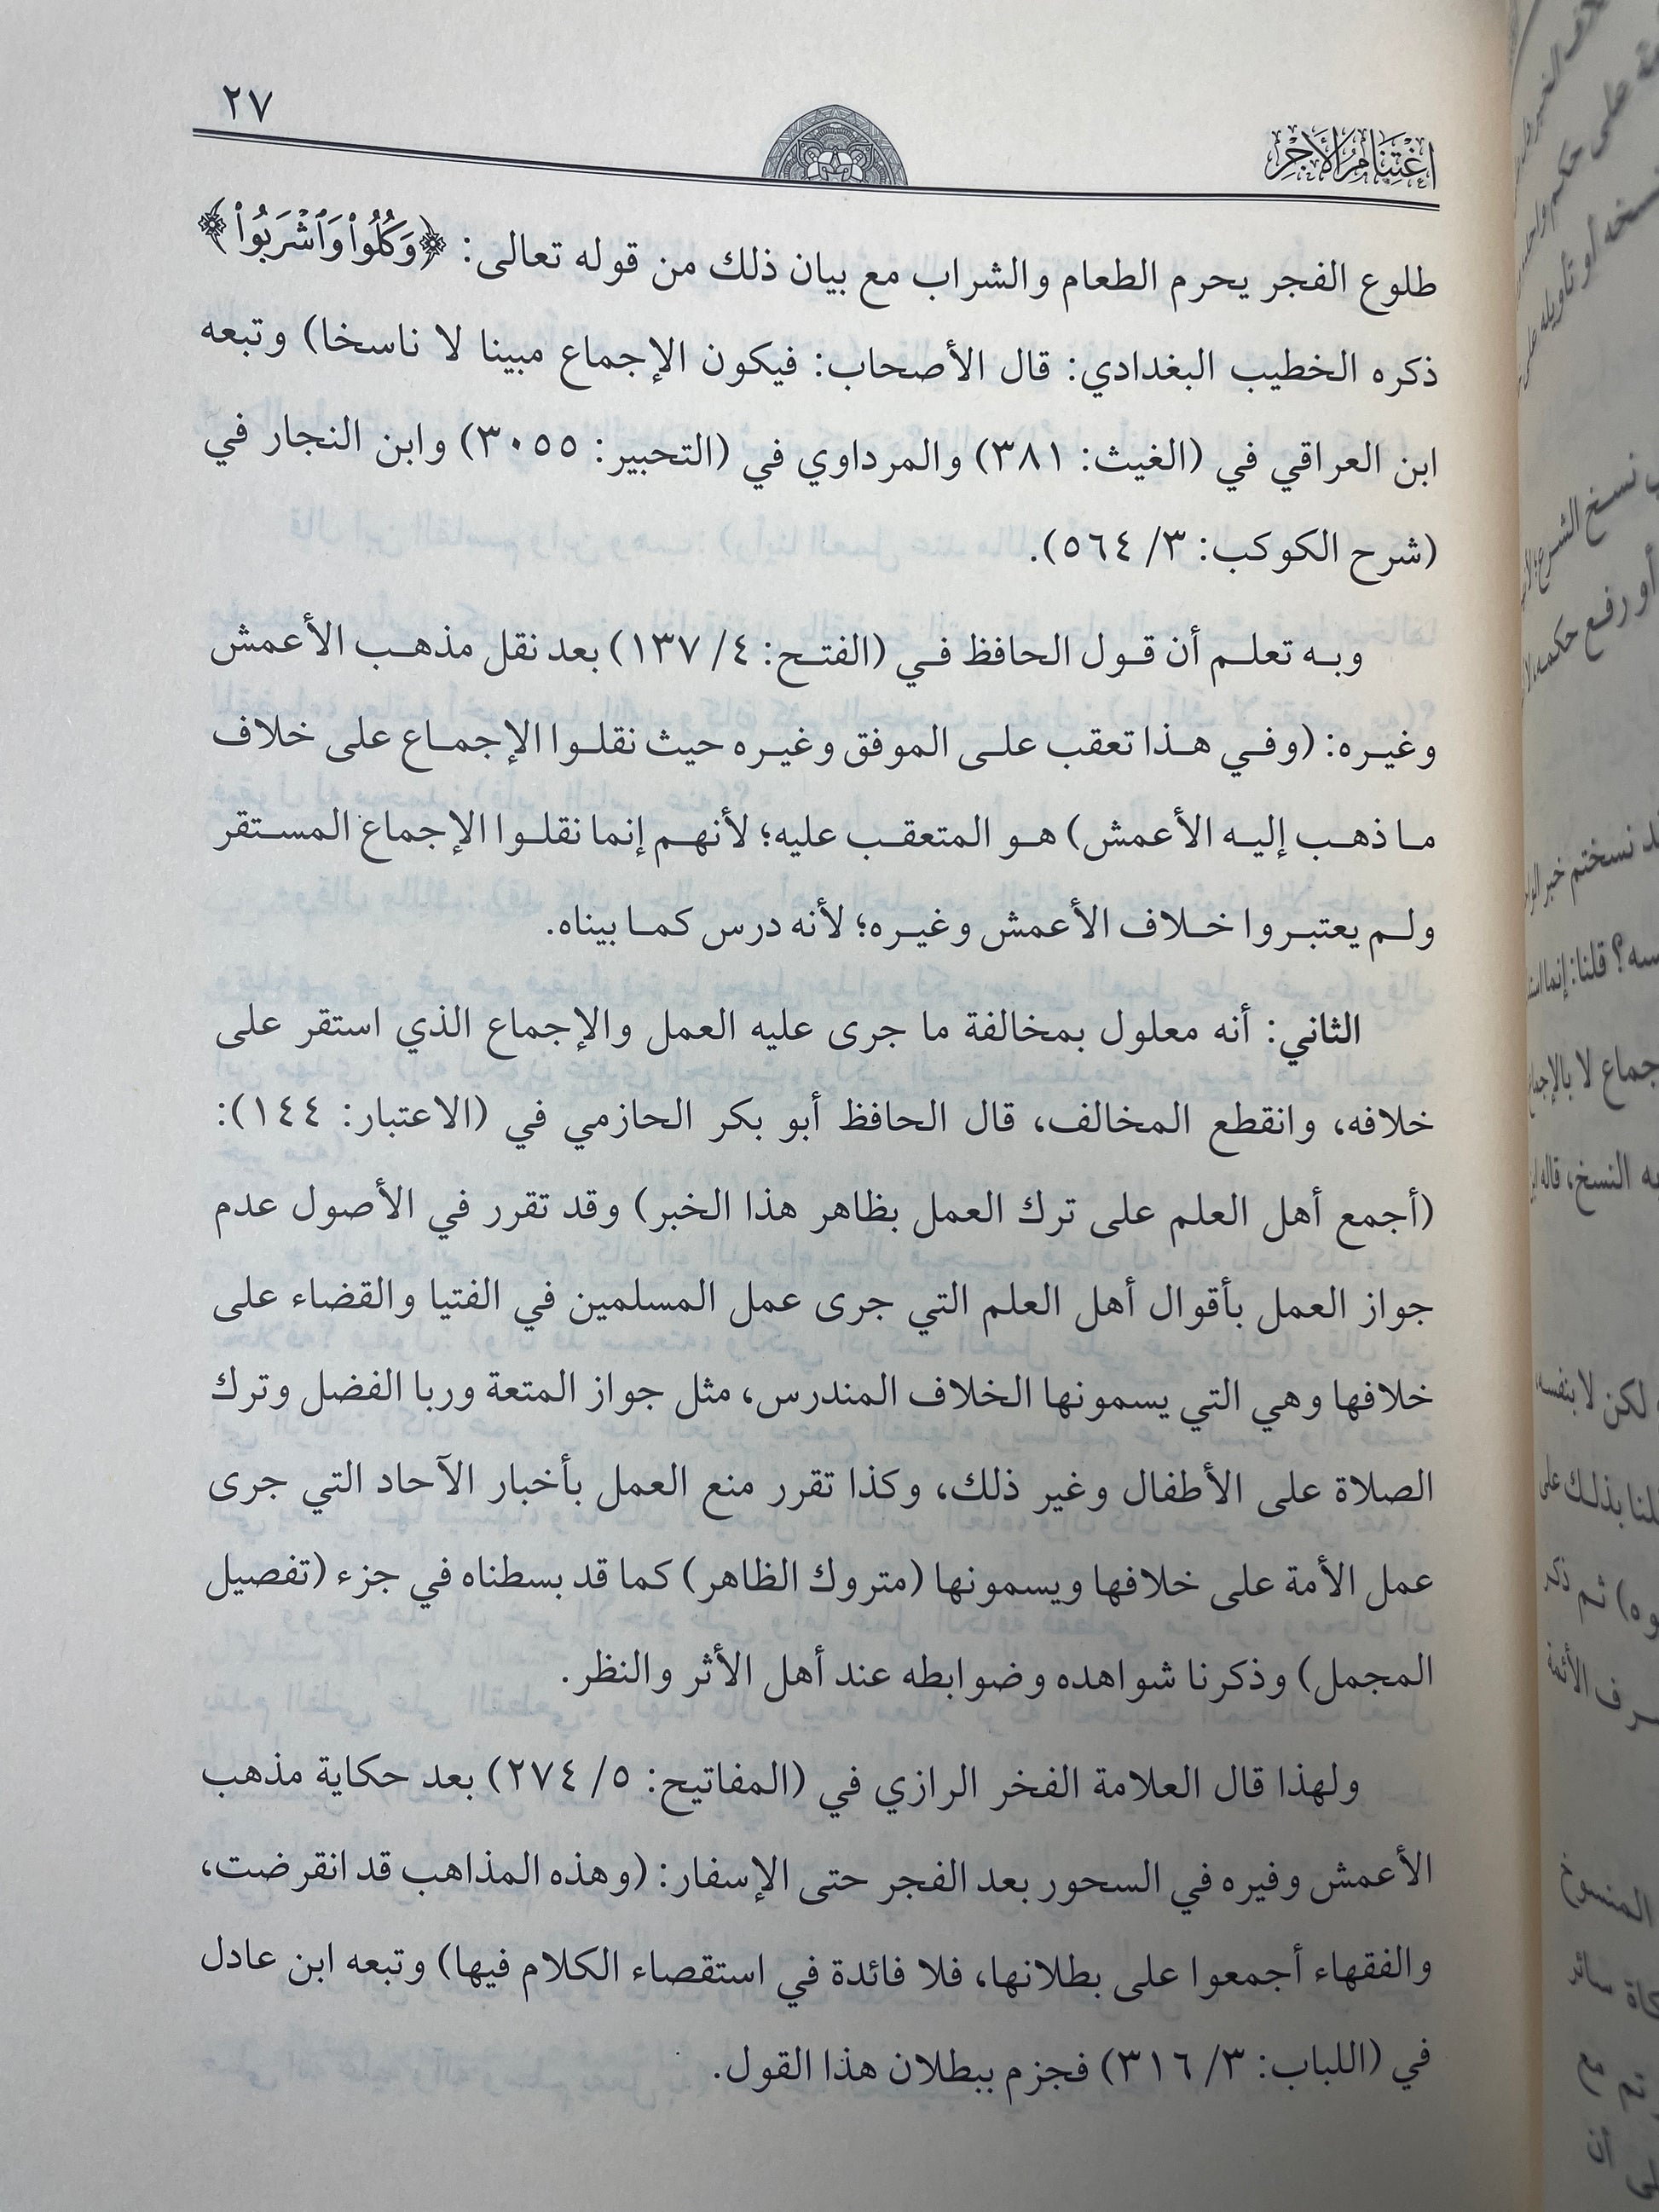 اغْتِنَامُ الأَجْرِ
٢٧
طلوع الفجر يحرم الطعام والشراب مع بيان ذلك من قوله تعالى: ﴿وَكُلُوا۟ وَٱشْرَبُوا۟﴾
ذكره الخطيب البغدادي: قال الأصحاب: فيكون الإجماع مبينا لا ناسخا) وتبعه
ابن العراقي في (الغيث: ٣٨١) والمرداوي في (التحبير: ٣٠٥٥) وابن النجار في
(شرح الكوكب: ٣/ ٥٦٤).
وبه تعلم أن قول الحافظ في (الفتح: ٤/ ١٣٧) بعد نقل مذهب الأعمش
وغيره: (وفي هذا تعقب على الموفق وغيره حيث نقلوا الإجماع على خلاف
ما ذهب إليه الأعمش) هو المتعقب عليه؛ لأنهم إنما نقلوا الإجماع المستقر
ولم يعتبروا خلاف الأعمش وغيره؛ لأنه درس كما بيناه.
الثاني: أنه معلول بمخالفة ما جرى عليه العمل والإجماع الذي استقر على
خلافه، وانقطع المخالف، قال الحافظ أبو بكر الحازمي في (الاعتبار: ١٤٤):
(أجمع أهل العلم على ترك العمل بظاهر هذا الخبر) وقد تقرر في الأصول عدم
جواز العمل بأقوال أهل العلم التي جرى عمل المسلمين في الفتيا والقضاء على
خلافها وهي التي يسمونها الخلاف المندرس، مثل جواز المتعة وربا الفضل وترك
الصلاة على الأطفال وغير ذلك، وكذا تقرر منع العمل بأخبار الآحاد التي جرى
عمل الأمة على خلافها ويسمونها (متروك الظاهر) كما قد بسطناه في جزء (تفصيل
المجمل) وذكرنا شواهده وضوابطه عند أهل الأثر والنظر.
ولهذا قال العلامة الفخر الرازي في (المفاتيح: ٥/ ٢٧٤) بعد حكاية مذهب
الأعمش وفيره في السحور بعد الفجر حتى الإسفار: (وهذه المذاهب قد انقرضت،
والفقهاء أجمعوا على بطلانها، فلا فائدة في استقصاء الكلام فيها) وتبعه ابن عادل
في (اللباب: ٣/ ٣١٦) فجزم ببطلان هذا القول.